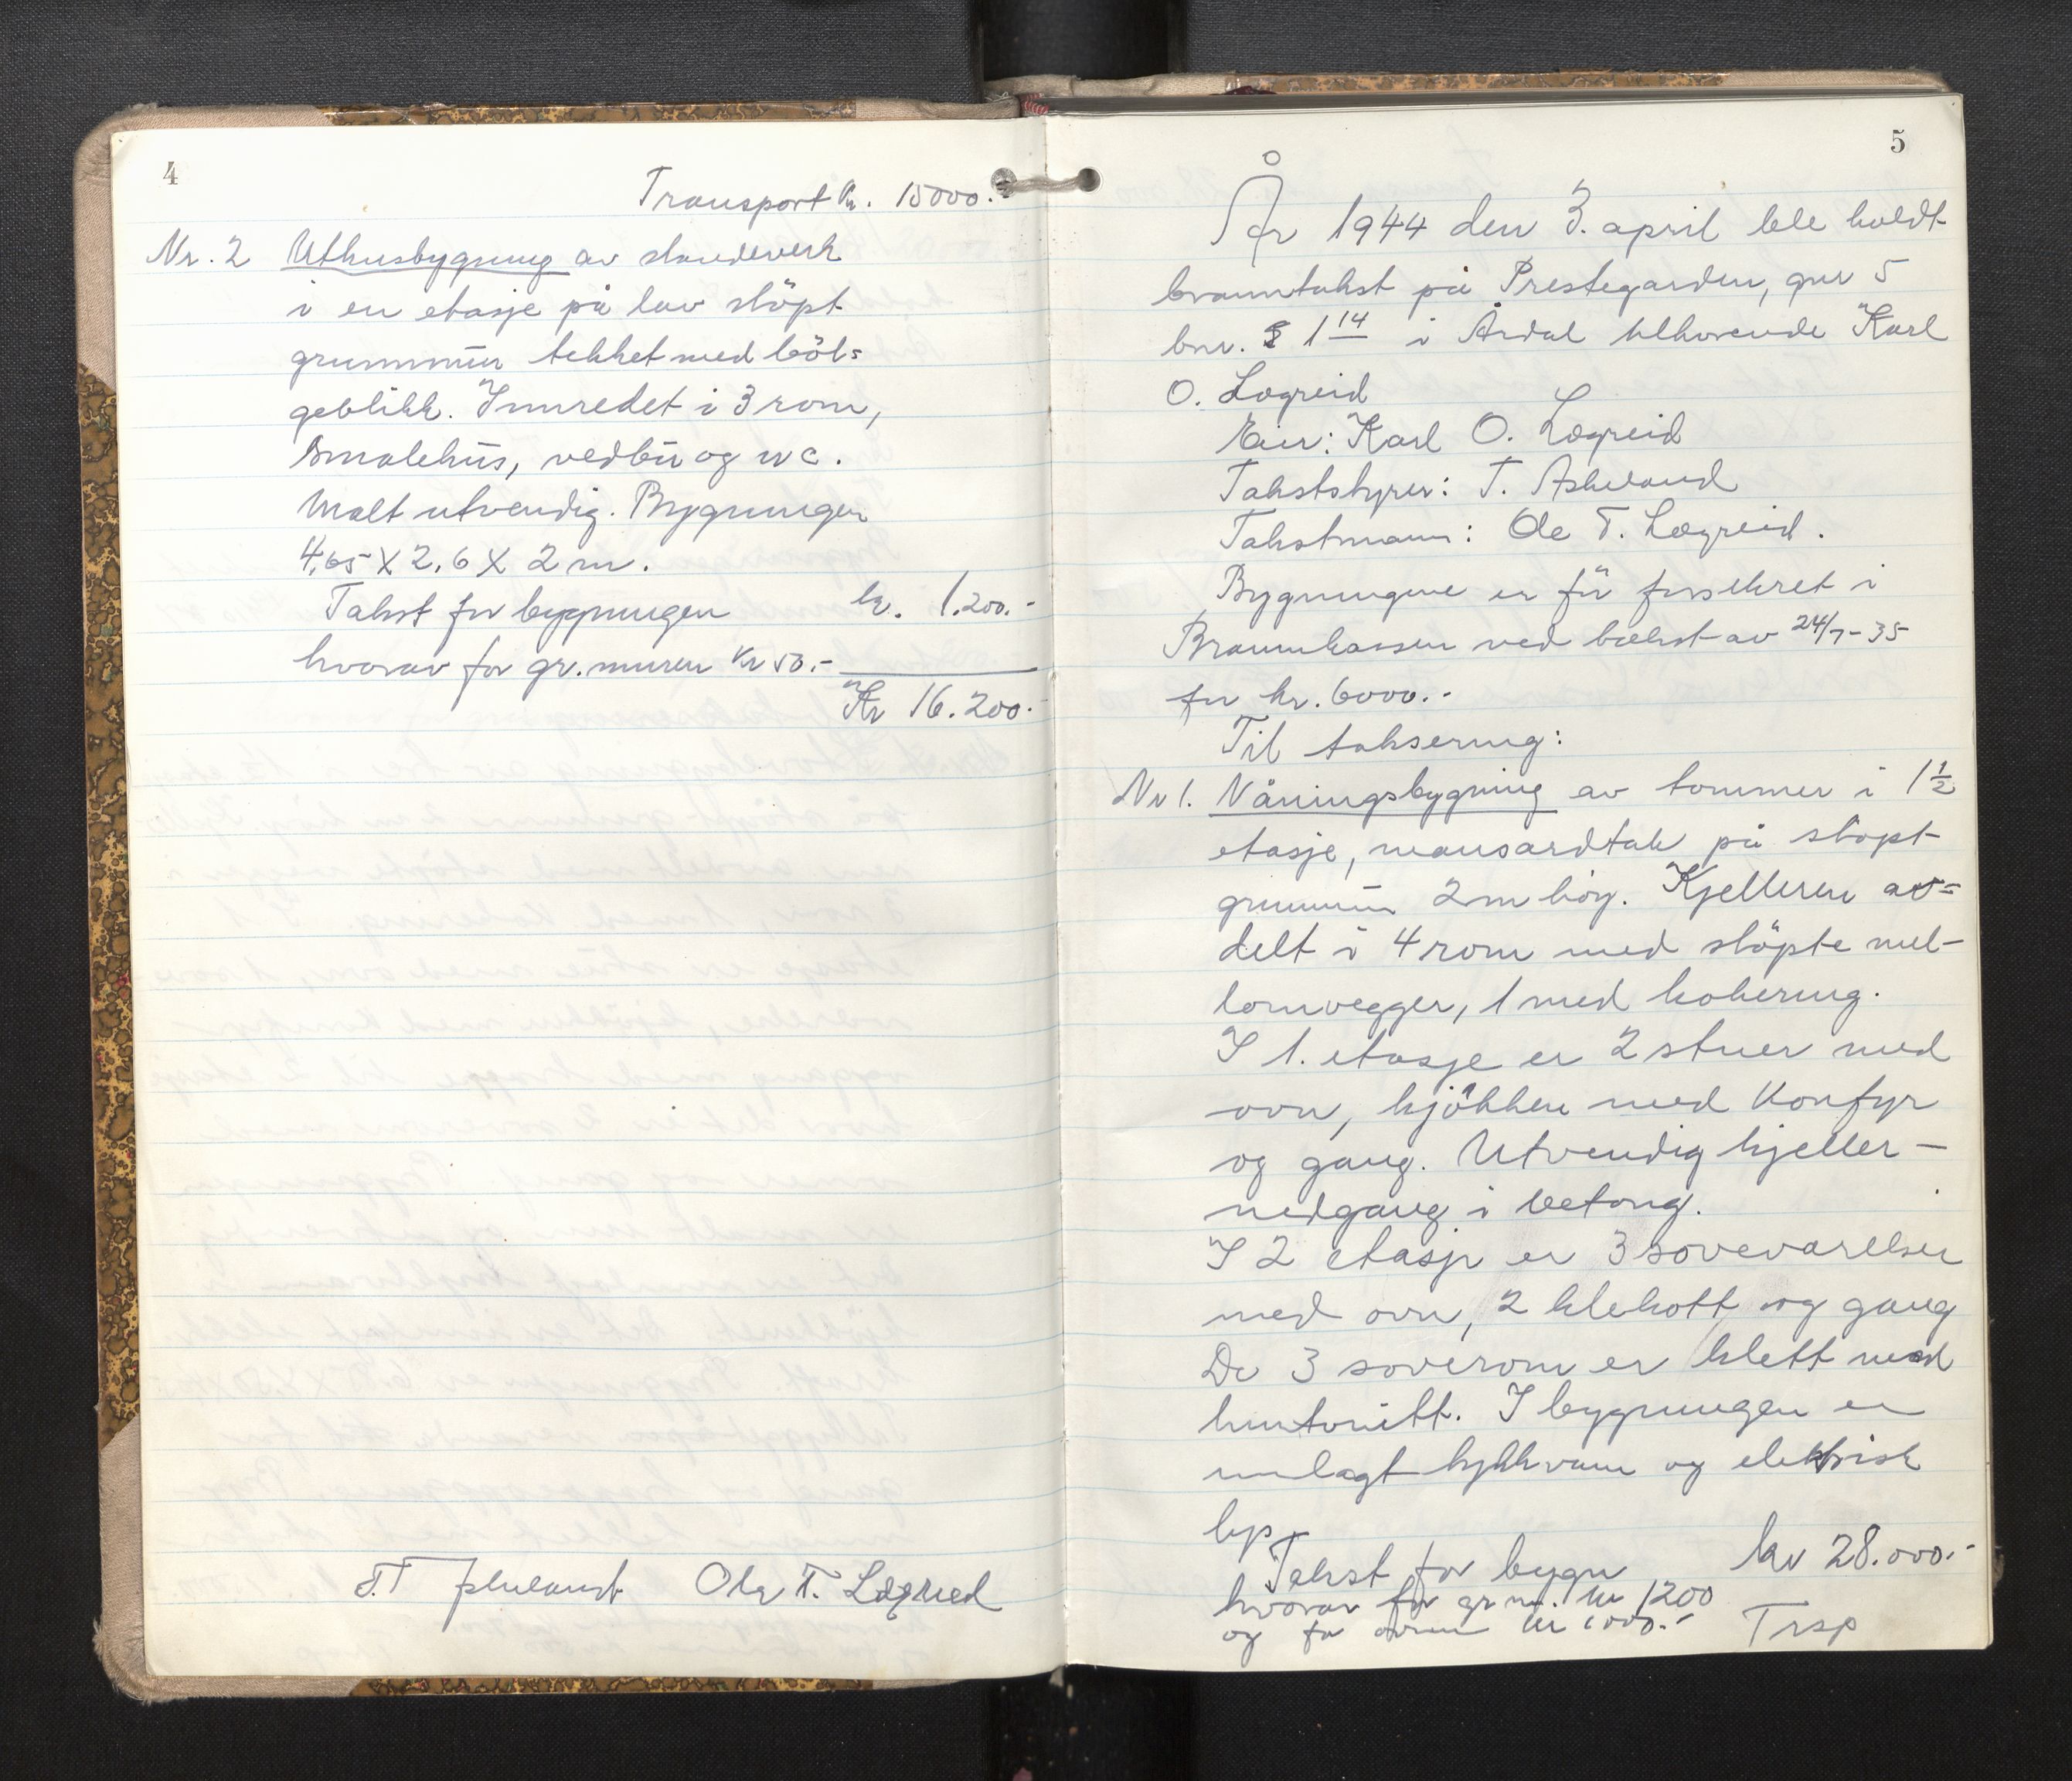 4
Transport kr. 15000.-
Nr. 2 Uthusbygning av standeverk
i en etasje på lav støpt
grunnmur tekket med böl=
geblikk. Innredet i 3 rom,
Smalehus, vedbu og wc.
Malt utvendig. Bygningen
4,65 X 2,6 X 2 m.
Takst for bygningen kr. 1.200.-
hvorav for gr.muren kr 50.-
Kr 16.200.-
T. T. Askeland Ole T. Lægreid
5
År 1944 den 3. april ble holdt
branntakst på Prestegarden, gnr 5
bnr. 1 14 i Årdal tilhørende Karl
O. Lægreid
Eier: Karl O. Lægreid
Takststyrer: T. Askeland
Takstmann: Ole T. Lægreid.
Bygningene er før forsikret i
Brannkassen ved takst av 24/7-35
for kr. 6000.-
Til taksering:
Nr 1. Våningsbygning av tømmer i 1 1/2
etasje, mansardtak på støpt
grunnmur 2 m høy. Kjelleren av=
delt i 4 rom med støpte mel-
lomvegger, 1 med kokering.
I 1. etasje er 2 stuer med
ovn, kjøkken med Komfyr
og gang. Utvendig kjeller-
nedgang i betong.
I 2 etasje er 3 soveværelser
med ovn, 2 klekott og gang
De 3 soverom er klett med
huntonitt. I bygningen er
innlagt kjkkvann og elektrisk
lys
Takst for bygn kr 28.000.-
hvorav for gr m. kr 1200
og for ovnen kr 1000.- Trsp